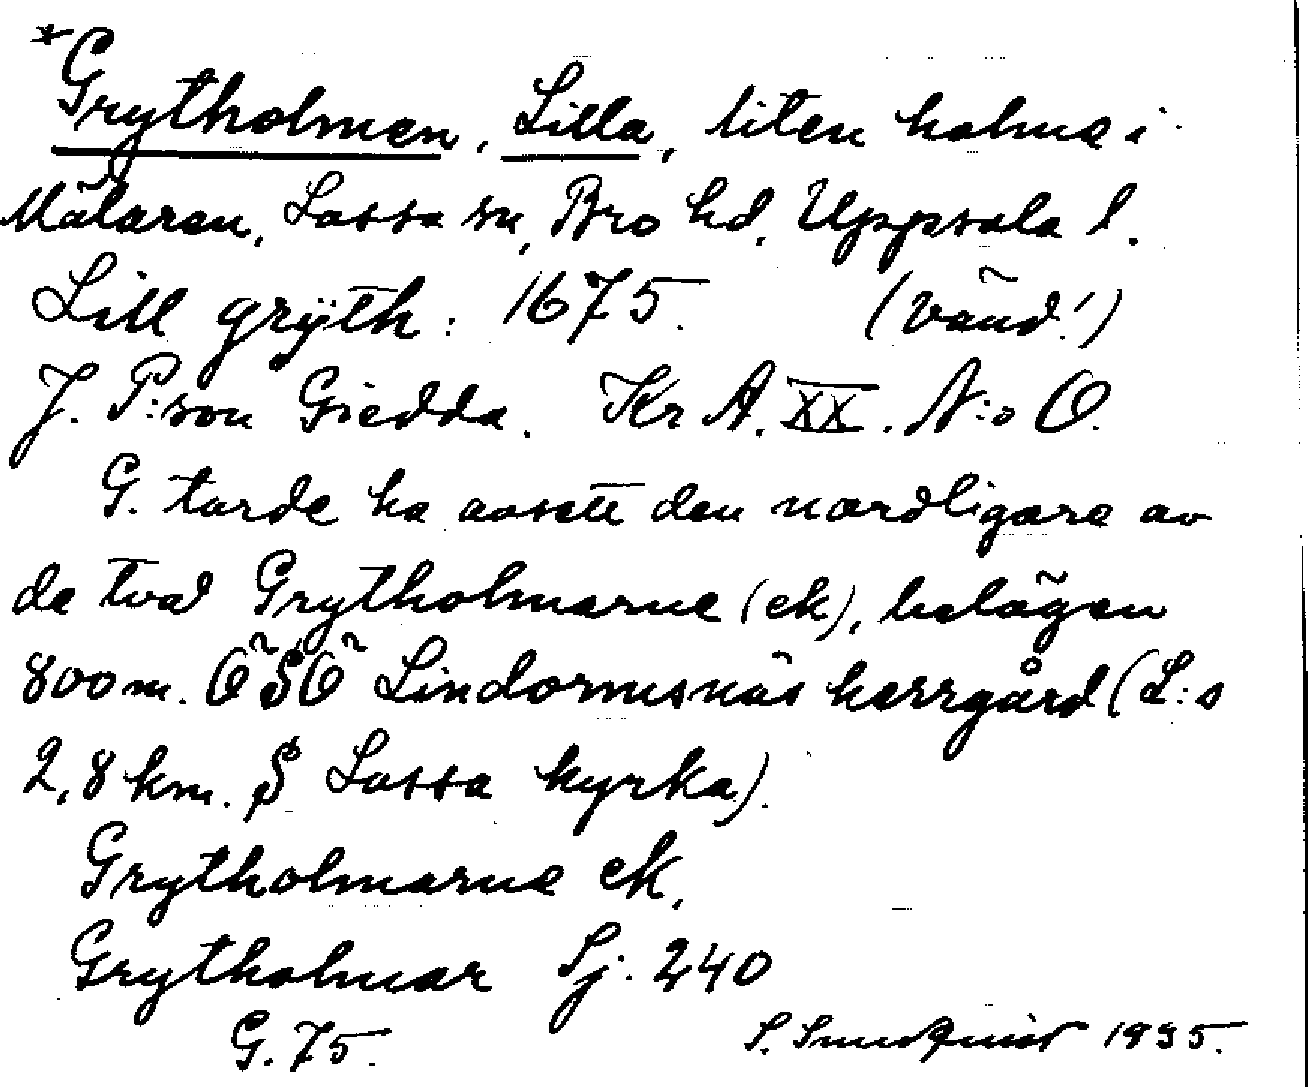 *Grytholmen, Lilla, liten holme i
Mälaren, Lossa sn, Bro hd, Uppsala l.
Lill grÿth: 1675. (vänd!)
J. P:son Giedda. Kr A. XX. N:o O.
G. torde ha avsett den nordligare av
de två Grytholmarne (ek), belägen
800 m. ÖSÖ Lindormsnäs herrgård (L:s
2,8 km. S Lossa kyrka).
Grytholmarne ek.
Grytholmar Sj. 240
G. 75. S. Sundquist 1935.